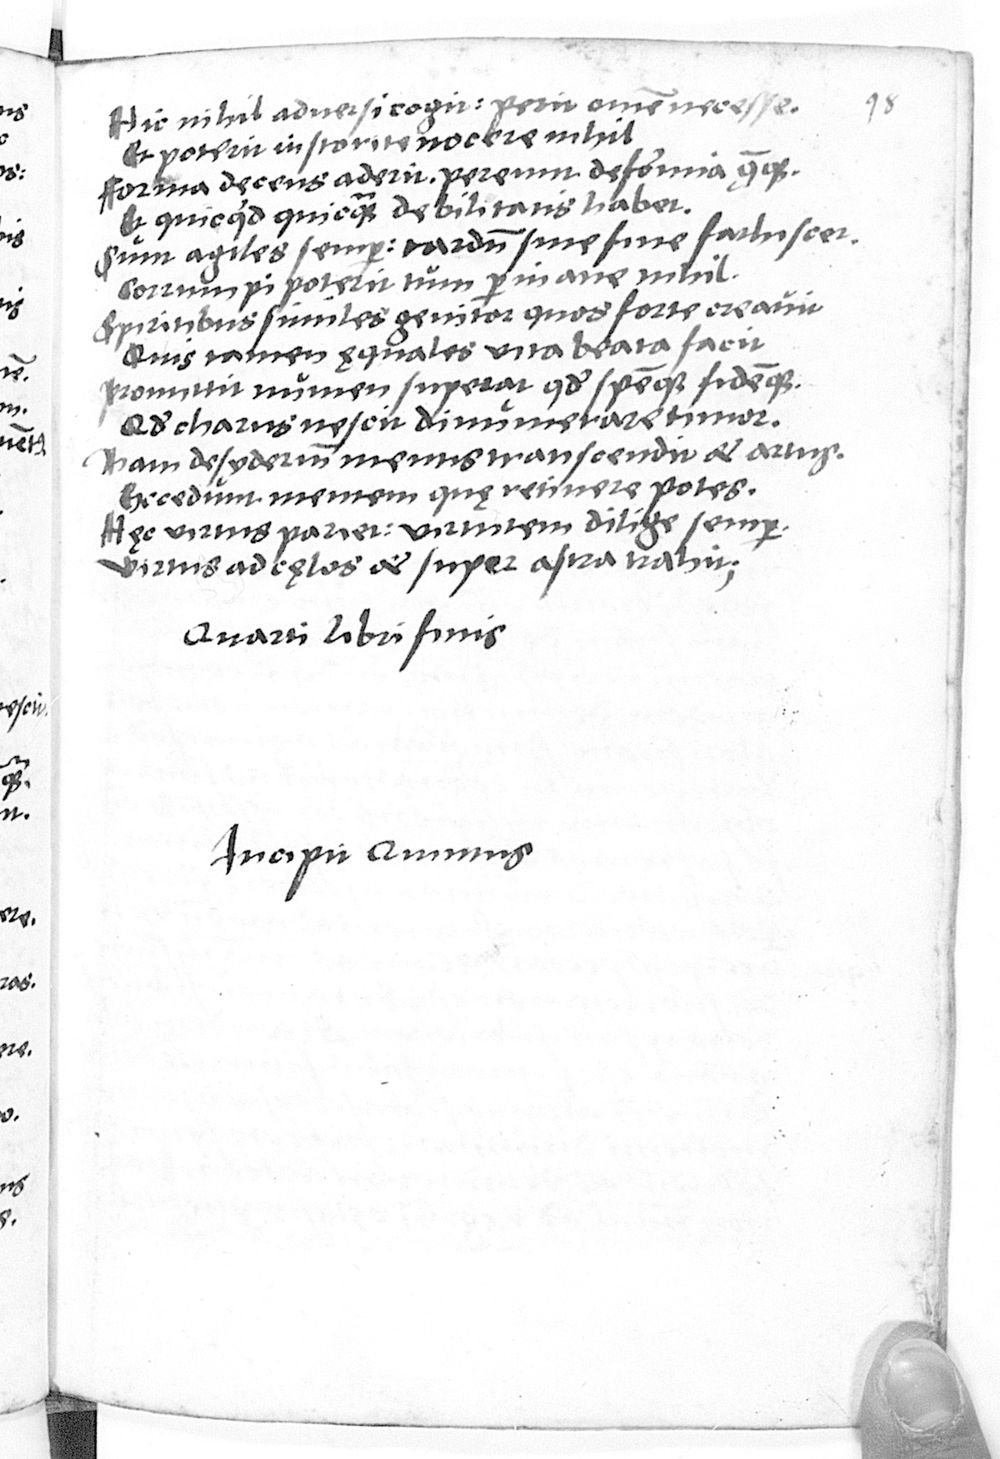 98
Hic nihil adversi cogit: perit omē necesse.
Et poterit in stomite nocere nihil
Forma decens aderit. pereunt deformia q̄q̨.
Et quicq̇d quicq̄ȝ debilitatis habet.
Sunt agiles semꝑ: tardū sine fine fathiscet.
Corrumpi poterit tum ꝑ inane nihil.
Spiritibus similes genitor quos forte creavit
Quis tamen ęquales vita beata facit
Promittit numen superat qđ spēq̨ fidēq̨.
Qđ charus nescit dinumerare timor.
Nam desyderiū mentis transcendit & artus.
Excedunt mentem quę retinere potes.
Hęc virtus pariet: virtutem dilige semꝑ.
Virtus ad cęlos & super astra trahit;
Quarti libri finis
Incipit Quintus